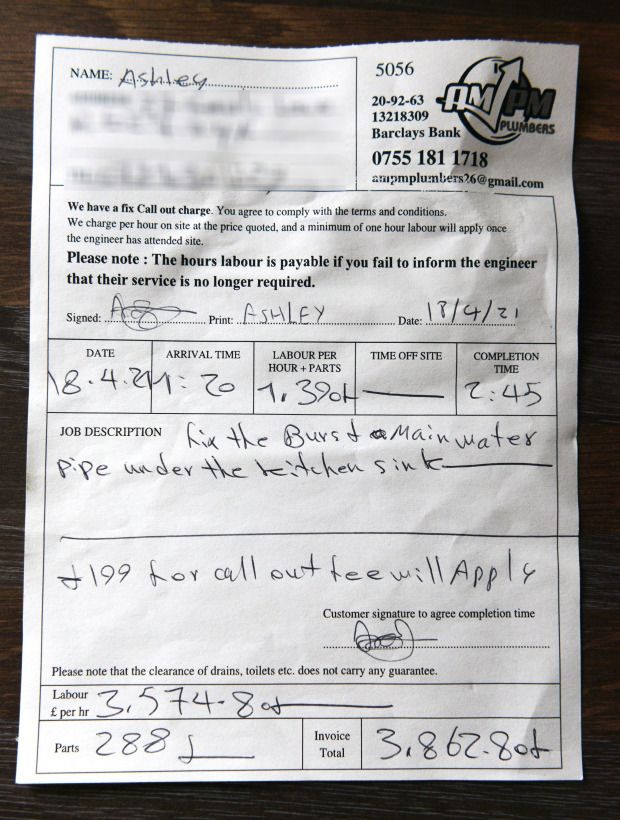 NAME: Ashley
5056
AM PM
PLUMBERS
20-92-63
13218309
Barclays Bank
0755 181 1718
ampmplumbers26@gmail.com
We have a fix Call out charge. You agree to comply with the terms and conditions.
We charge per hour on site at the price quoted, and a minimum of one hour labour will apply once
the engineer has attended site.
Please note : The hours labour is payable if you fail to inform the engineer
that their service is no longer required.
Signed: Print: ASHLEY Date: 18/4/21
DATE ARRIVAL TIME LABOUR PER HOUR + PARTS TIME OFF SITE COMPLETION TIME
18.4.21 1:20 1,390£ 2:45
JOB DESCRIPTION fix the Burst Main water
pipe under the kitchen sink
£199 for call out fee will Apply
Customer signature to agree completion time
Please note that the clearance of drains, toilets etc. does not carry any guarantee.
Labour £ per hr 3,574.80£
Parts 288£ Invoice Total 3.862.80£